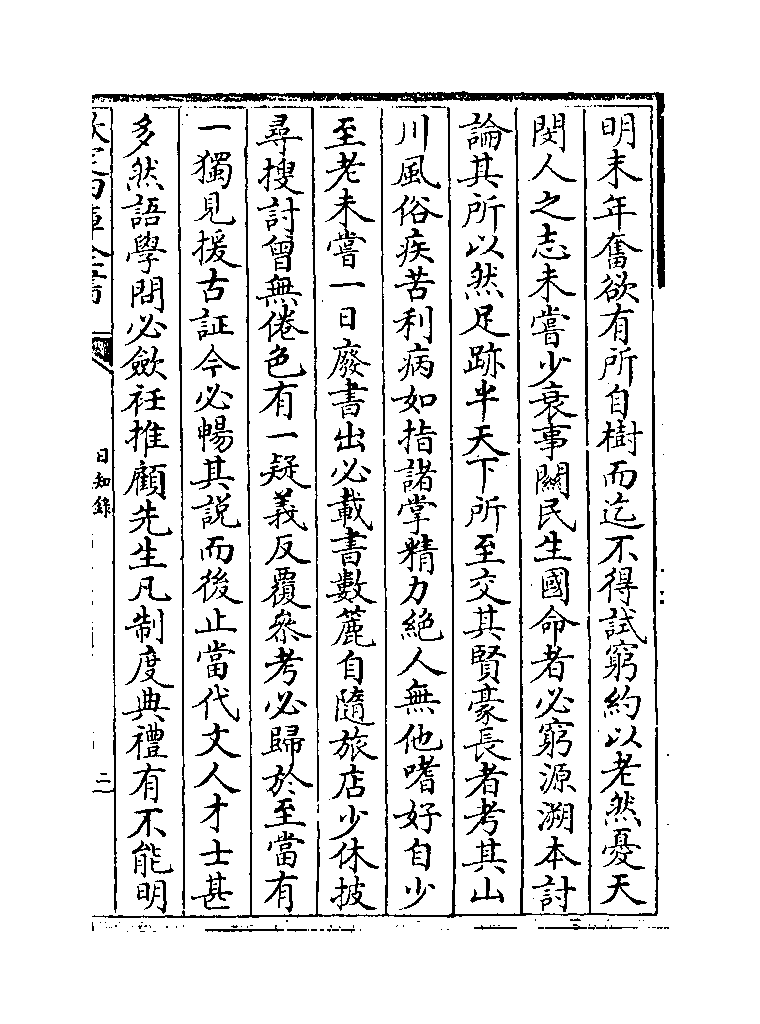 明末年奮欲有所自樹而迄不得試窮約以老然憂天
閔人之志未嘗少衰事關民生國命者必窮源溯本討
論其所以然足跡半天下所至交其賢豪長者考其山
川風俗疾苦利病如指諸掌精力絶人無他嗜好自少
至老未嘗一日廢書出必載書數簏自隨旅店少休披
尋搜討曾無倦色有一疑義反覆叅考必歸於至當有
一獨見援古証今必暢其説而後止當代文人才士甚
多然語學問必斂衽推顧先生凡制度典禮有不能明
日知錄
二